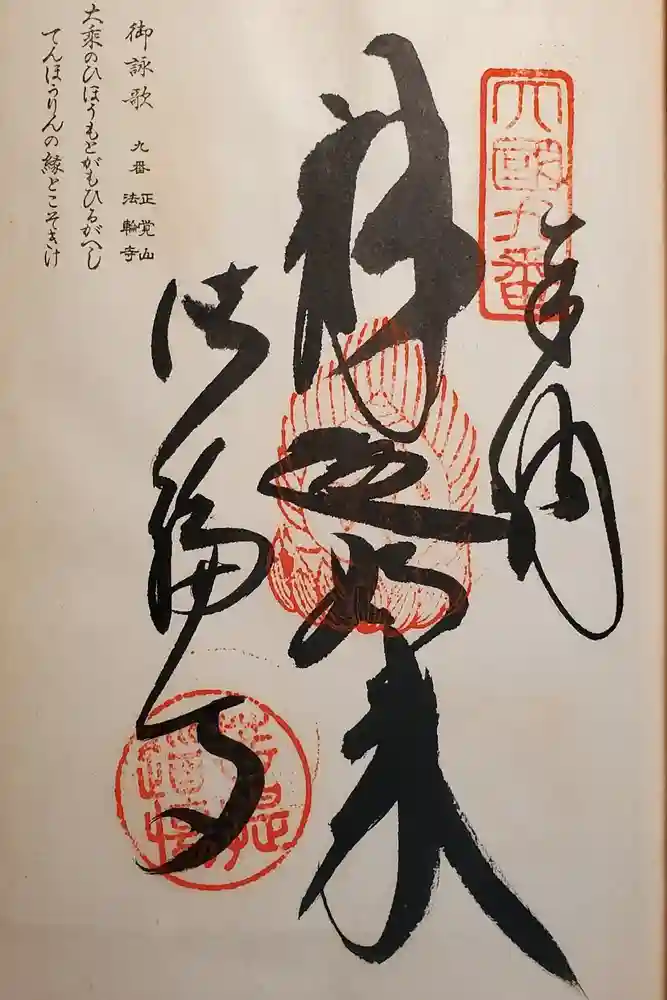 四國九番
奉納
釈迦如来
法輪寺
御詠歌 九番 正覚山 法輪寺
大乘のひほうもとがもひるがへし
てんほうりんの縁とこそきけ